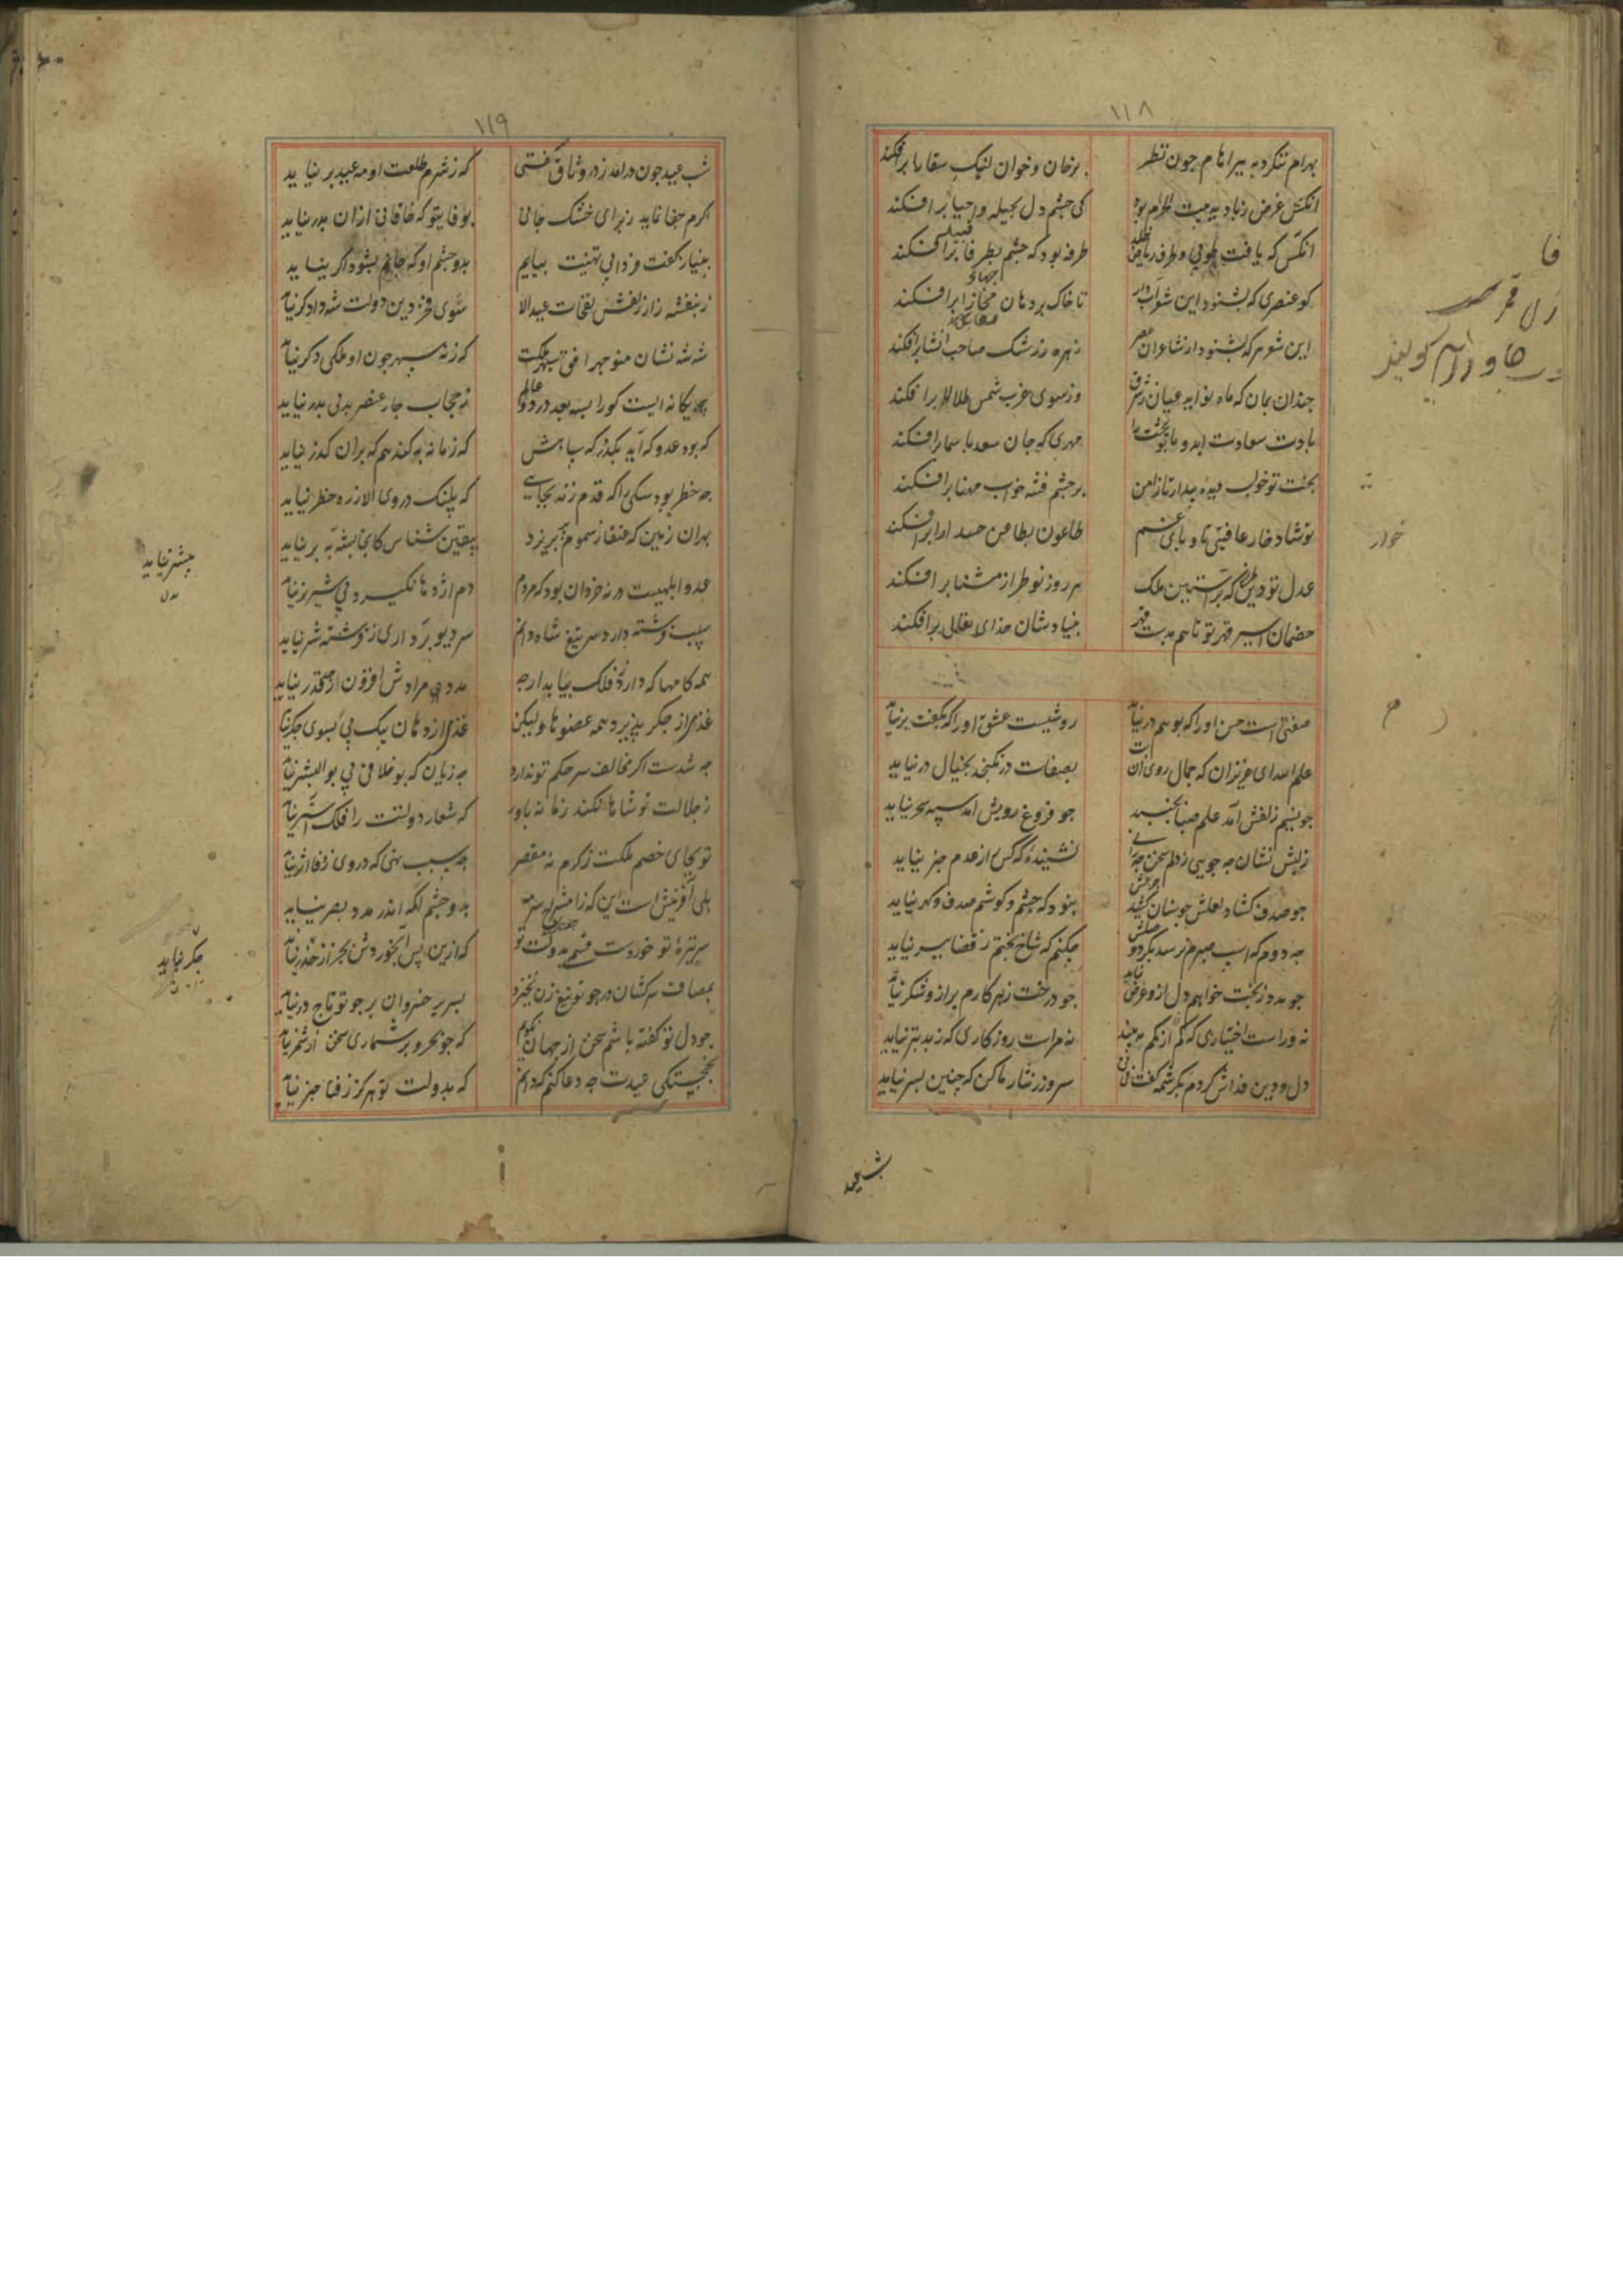 ۱۱۸
بهرام ننکرد به بیراهام چون نظر برخان و خوان لنبک سقا برافکند
انکس غرض زبادیه بیت الحرام بود کی چشم دل بحیله و احیا برافکند
انکس که یافت طوبی و طرف ریاض طرفه بود که چشم بطرفا برافکند
کو عنصری که بشنود این شعر ابدار تا خاک بر دهان مجازا برافکند
این شعر هرکه بشنود از شاعران عصر زهره ز رشک صاحب انشا برافکند
چندان بمان که ماه نو اید عیان ز شرق وز سوی غرب شمس طلالا برافکند
بادت سعادت ابد و با بخت ترا مهری که جان سعد باسما برافکند
بخت تو خواب دیده بیدار تا ز امن بر چشم فتنه خواب مهنا برافکند
تو شادخار عافیتی تا وبای غم طاعون بطاعن حسد ادا برافکند
عدل تو دین طراز که بر آستین ملک هر روز نو طراز مثنا برافکند
خصمان اسیر قهر تو تا هم بدست قهر بنیادشان خدای تعالی برافکند
صفتی است حسن او را که بوهم درنیاید روشیست عشق او را که بکفت برنیاید
علم الله ای عزیزان که جمال روی آن بت بصفات درنکنجد بخیال درنیاید
چو نسیم زلفش آمد علم صبا نجنبد چو فروغ رویش امد سپه سحر نیاید
ز لبش نشان چه جویی ز دلم سخن چه رانی نشنیده که کس از عدم خبر نیاید
چو صدف کشاد لعلش چو سنان کشید جزعش بنود که چشم و کوشم صدف و کهر نیاید
چه دوم که اسب صبرم نرسد بکرد وصلش چکنم که شاخ بختم ز قضا ببر نیاید
چو مدد ز بخت خواهم دل ازو غرض نیابد چو درخت زهر کارم بر ازو شکر نیاید
نه وراست اختیاری که کم از کمم نه بیند نه مراست روزکاری که ز بد بتر نیاید
دل و دین فداش کردم بکرشمه کفت نی نی سر و زر نثار ما کن که چنین بسر نیاید
خوار
۱۱۹
شب عید چون درامد ز در وثاق کفتی که ز شرم طلعت او مه عید برنیاید
اکرم جفا نماید ز برای خشک جانی بوفا بتو که خاقانی ازان بدر نیاید
بنیاز کفت فردا پی تهنیت بیایم بدو چشم او که جانم بشود اکر نیاید
ز بنفشه زار زلفش نفحات عید الا سوی فخر دین و دولت شه دادکر نیاید
شه شه نشان منوچهر افق سپهر ملکت که ز نه سپهر چون او ملکی دکر نیاید
چه یکانه ایست کو را بسه بعد در دو عالم ز حجاب چار عنصر بدنی بدر نیاید
که بود عدو که آید بکذرکه سپاهش که زمانه به کند هم که بران کذر نیاید
چه خطر بود سکی را که قدم زند بجایی که پلنک در وی الا ز ره خطر نیاید
بدان زمین که عنقا ز سموم پر بریزد بیقین شناس کانجا پشه به پر نیاید
عدو ابلهیست ورنه خردان بود که مردم دم اژدها نکیرد پی شیر نر نیاید
سبب فرشته دارد سر تیغ شاه و دانم سر دیو برد اری ز فرشته شر نیاید
همه کامها که دارد ز فلک بیابد ارچه مدد پی مرادش افزون از قدر نیاید
غذی از جکر پذیرد همه عضوها ولیکن غذی از دهان بیک پی بسوی جکر نیاید
چه شدست اکر مخالف سر حکم تو ندارد چه زیان که بوخلافی پی بوالبشر نیاید
ز جلالت تو شاها نکند زمانه باور که شعار دولتت را فلک آستر نیاید
تو بجای خصم ملکت ز کرم نه مقصر چه سبب بنی که در وی ز وفا اثر نیاید
بدو چشم انکه اندر مدد بصر نیاید
سر نیزه تو خوردست قسم بدولت تو که ازین پس آبخوردش بجز از خزر نیاید
بمصاف سرکشان در چو تو تیغ زن نخیزد بسریر خسروان بر چو تو تاجور نیاید
چو دل تو کفته باشم سخن از جهان نکویم که چو بحر و بر شماری سخن از شمر نیاید
بخجستکی عیدت چه دعا کنم که دانم که بدولت تو هرکز ز فنا خبر نیاید
بیشتر نیاید
جکر نیاید